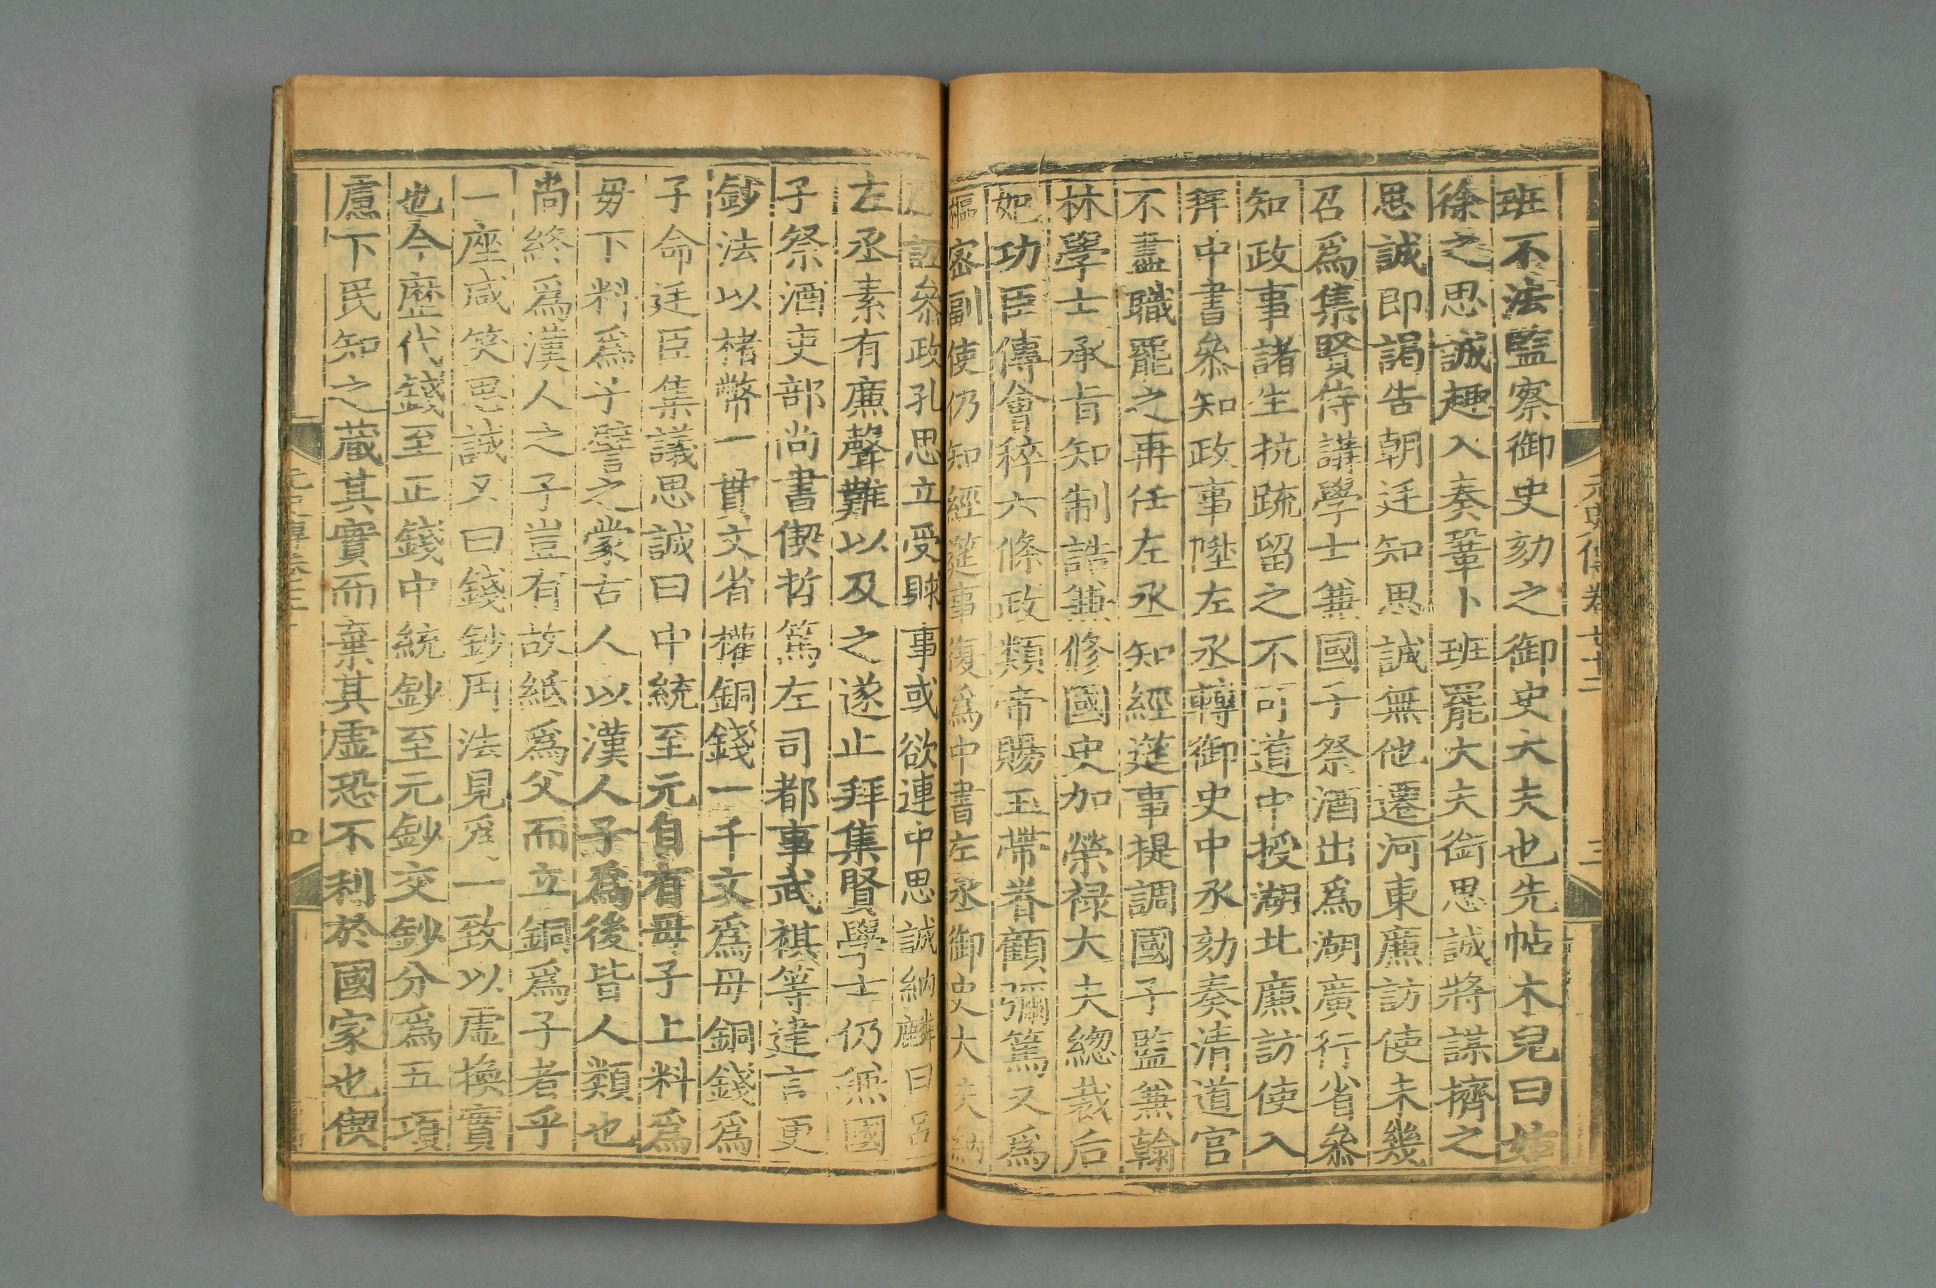 班不法監察御史劾之御史大夫也先帖木兒曰姑
徐之思誠趣入奏鞏卜班罷大夫銜思誠將謀擠之
思誠即謁告朝廷知思誠無他遷河東廉訪使未幾
召爲集賢侍講學士兼國子祭酒出爲湖廣行省叅
知政事諸生抗疏留之不可道中授湖北廉訪使入
拜中書叅知政事陞左丞轉御史中丞劾奏清道官
不盡職罷之再任左丞知經筵事提調國子監兼翰
林學士承旨知制誥兼修國史加榮禄大夫總裁后
妃功臣傳會稡六條政類帝賜玉帶眷顧彌篤又爲
樞密副使仍知經筵事復爲中書左丞御史大夫納
誣叅政孔思立受賕事或欲連中思誠納麟曰呂
左丞素有廉聲難以及之遂止拜集賢學士仍兼國
子祭酒吏部尚書偰哲篤左司都事武祺等建言更
鈔法以楮幣一貫文省權銅錢一千文爲母銅錢爲
子命廷臣集議思誠曰中統至元自有母子上料爲
毋下料爲子譬之蒙古人以漢人子爲後皆人類也
尚終爲漢人之子豈有故紙爲父而立銅爲子者乎
一座咸笑思誠又曰錢鈔用法見爲一致以虛換實
也今歷代錢至正錢中統鈔至元鈔交鈔分爲五項
慮下民知之藏其實而棄其虛恐不利於國家也偰
元史傳卷七十二
三
四